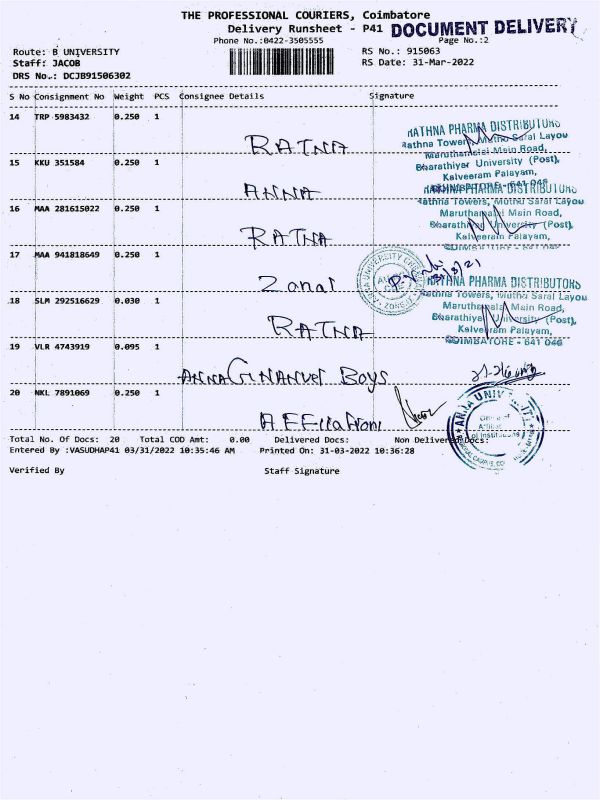 THE PROFESSIONAL COURIERS, Coimbatore
Delivery Runsheet - P41 DOCUMENT DELIVERY
Phone No.:0422-3505555 Page No.:2
Route: B UNIVERSITY RS No.: 915063
Staff: JACOB RS Date: 31-Mar-2022
DRS No.: DCJB91506302
S No Consignment No Weight PCS Consignee Details Signature
14 TRP 5983432 0.250 1
RATNA
RATHNA PHARMA DISTRIBUTORS
Rathna Towers, Muthu Saral Layou
Maruthamalai Main Road,
Bharathiyar University (Post),
Kalveeram Palayam,
COIMBATORE - 641 046
15 KKU 351584 0.250 1
ANNA
16 MAA 281615022 0.250 1
RATNA
RATHNA PHARMA DISTRIBUTORS
Rathna Towers, Muthu Saral Layou
Maruthamalai Main Road,
Bharathiyar University (Post),
Kalveeram Palayam,
17 MAA 941818649 0.250 1
Zonal
18 SLM 292516629 0.030 1
RATNA
RATHNA PHARMA DISTRIBUTORS
Rathna Towers, Muthu Saral Layou
Maruthamalai Main Road,
Bharathiyar University (Post),
Kalveeram Palayam,
COIMBATORE - 641 046
19 VLR 4743919 0.095 1
ANNA Boys
20 NKL 7891069 0.250 1
Total No. Of Docs: 20 Total COD Amt: 0.00 Delivered Docs: Non Delivered Docs:
Entered By :VASUDHAP41 03/31/2022 10:35:46 AM Printed On: 31-03-2022 10:36:28
Verified By Staff Signature